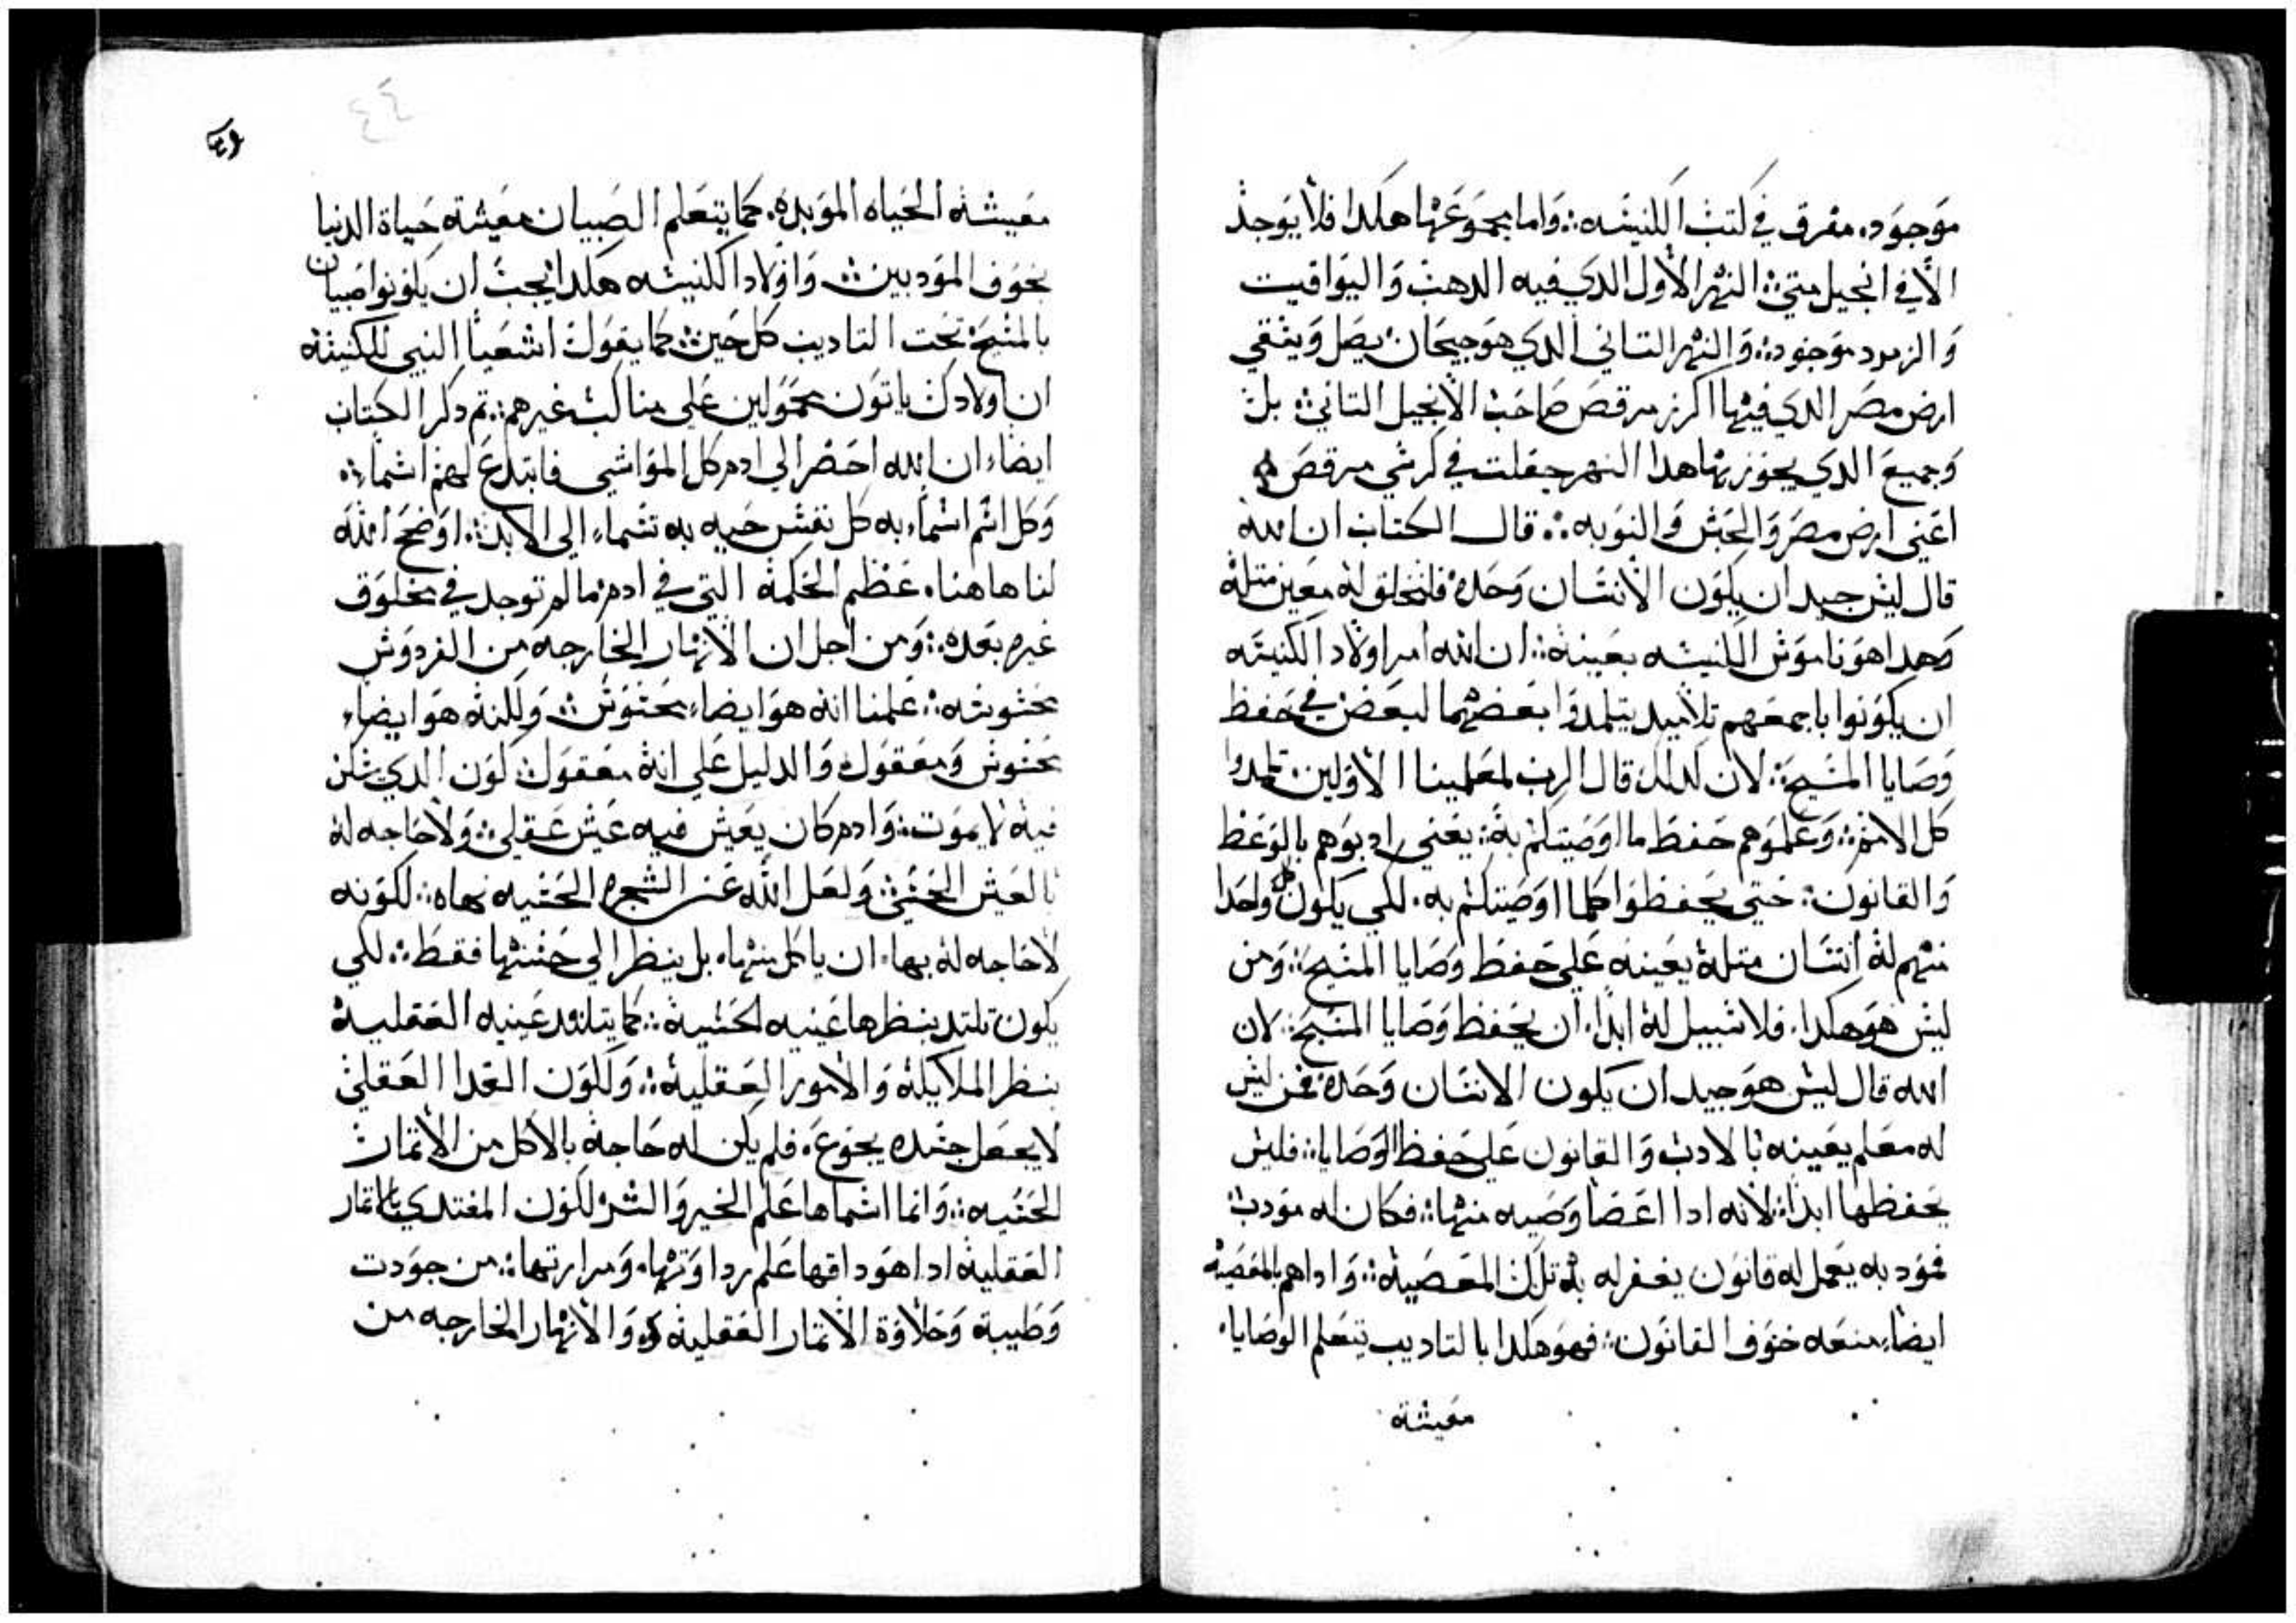 موجود. مفرق في كتب الكنيسه:. واما بمجموعها هكدا فلا يوجد
الا في انجيل متي:. النهر الاول الدي فيه الدهب واليواقيت
والزمرد موجود:. والنهر التاني الدي هو جيحان يصل ويسقي
ارض مصر الدي فيها اكرز مرقص صاحب الانجيل التاني: بل
وجميع الدي يجوز بها هدا النهر جعلت في كرسي مرقص
اعني ارض مصر والحبش والنوبه:. قال الكتاب ان الله
قال ليس جيد ان يكون الانسان وحده فلنخلق له معين متله
وهدا هو ناموس الكنيسه بعينه:. ان الله امر اولاد الكنيسه
ان يكونوا باجمعهم تلاميد يتلمدوا بعضهما لبعض في حفظ
وصايا المسيح:. لان لدلك قال الرب لمعلمينا الاولين. تلمدوا
كل الامم:. وعلموهم حفظ ما اوصيتكم به: يعني ادبوهم بالوعظ
والقانون: حتي يحفظوا كلما اوصيتكم به. لكي يكون كل واحدا
منهم له انسان متله يعينه علي حفظ وصايا المسيح:. ومن
ليس هو هكدا. فلا سبيل له ابدا. ان يحفظ وصايا المسيح: لان
الله قال ليس هو جيد ان يكون الانسان وحده فمن ليس
له معلم يعينه بالادب والقانون علي حفظ الوصايا:. فليس
يحفظها ابدا: لانه ادا اعصا وصيه منها:. فكان له مودب:
فمودبه يعمل له قانون يغفر له به تلك المعصيه:. وادا هم بالمعصيه
ايضا منعه خوف القانون: فهو هكدا بالتاديب يتعلم الوصايا.
معيشة
٤٤
معيشه الحياه الموبده. كما يتعلم الصبيان معيشة حياة الدنيا
بخوف المودبين:. واولاد الكنيسه هكدا يجب ان يكونوا صبيان
بالمسيح تحت التاديب كل حين: كما يقول اشعيا النبي للكنيسه
ان اولادك ياتون محمولين علي مناكب غيرهم:. تم دكر الكتاب
ايضا ان الله احضر الي ادم كل المواشي فابتدع لهم اسماء:.
وكل اسم اسماء به كل نفس حيه به تسماء الي الابد:. اوضح الله
لنا هاهنا. عظم الحكمه التي في ادم ما لم توجد في مخلوق
غيره بعده:. ومن اجل ان الانهار الخارجه من الفردوس
محسوسه:. علمنا انه هو ايضا محسوس:. ولكنه هو ايضا
محسوس ومعقول والدليل علي انه معقول كون الدي سكن
فيه لا يموت:. وادم كان يعيش فيه عيش عقلي: ولا حاجه له
بالعيش الحسي ولعل الله عن الشجره الحسيه نهاه:. لكونه
لا حاجه له بها. ان ياكل منها. بل ينظر الي حسنها فقط:. لكي
يكون تلتد بنظرها عينيه الحسية:. كما يتلدد عينيه العقلية
بنظر الملايكة والامور العقلية:. ولكون الغدا العقلي
لا يجعل جسده يجوع. فلم يكن له حاجة بالاكل من الاتمار
الحسيه:. وانما اسماها علم الخير والشر لكون المغتدي بالاتمار
العقلية ادا هو داقها علم رداوتها. ومرارتها: من جودت
وطيبة وحلاوة الاتمار العقلية والانهار الخارجه من